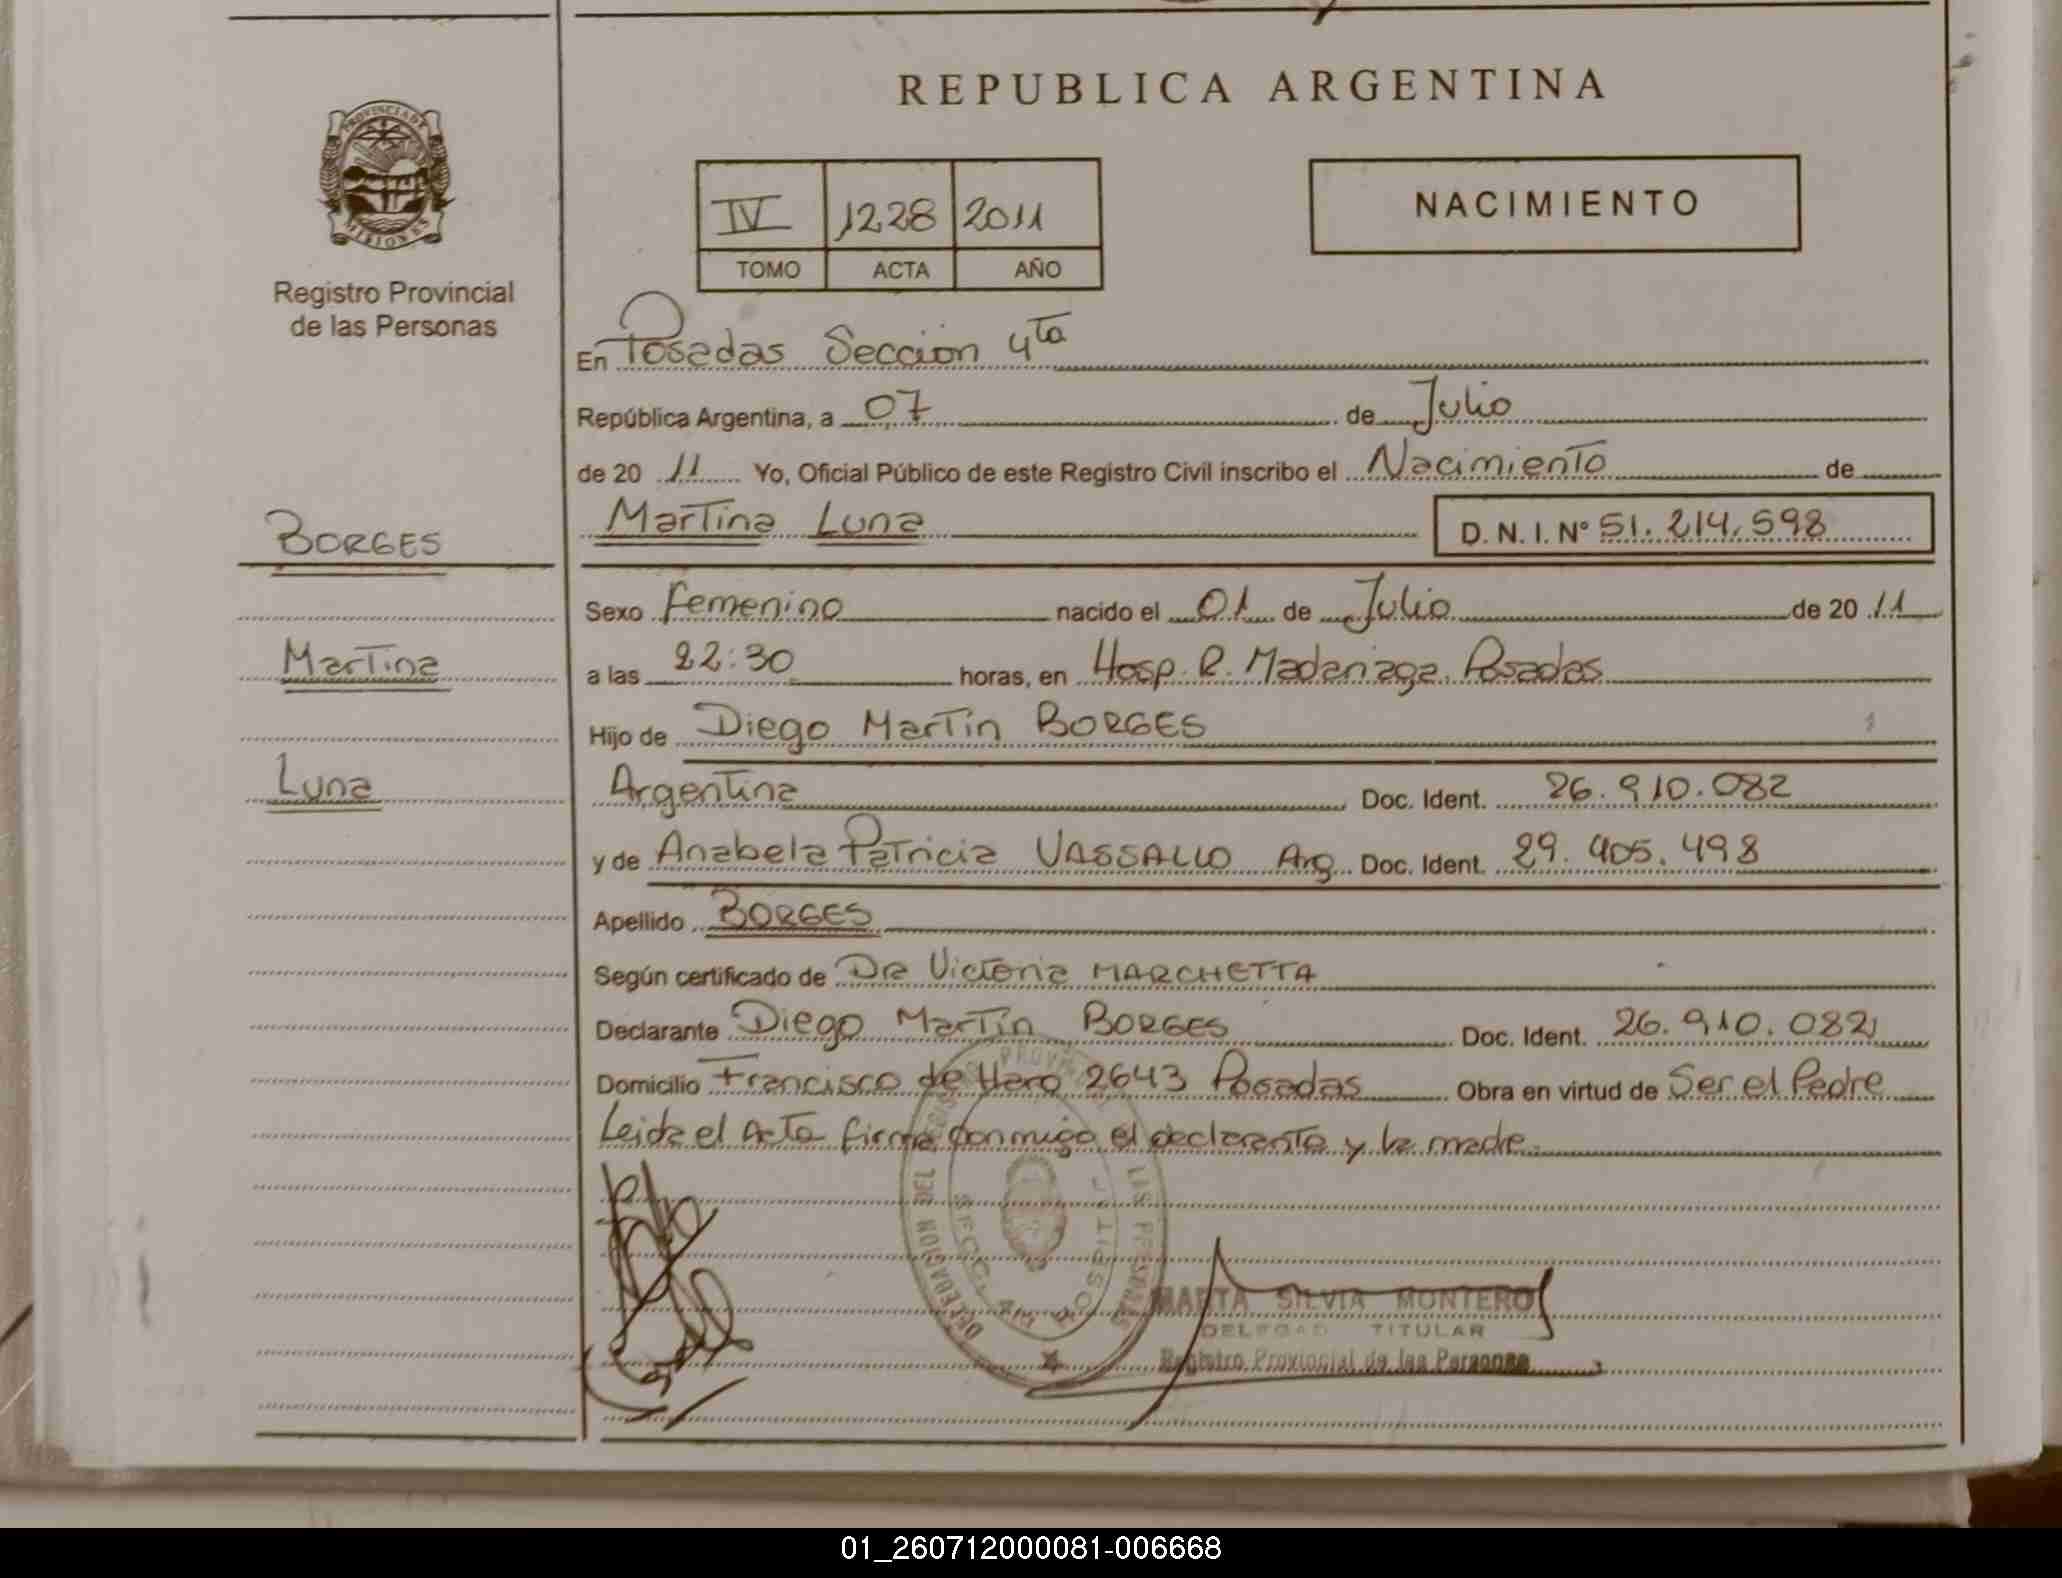 REPUBLICA ARGENTINA
PROVINCIA DE
MISIONES
Registro Provincial
de las Personas
IV 1228 2011
TOMO ACTA AÑO
NACIMIENTO
En Posadas Sección 4ta
República Argentina, a 07 de Julio
de 20 11 Yo, Oficial Público de este Registro Civil inscribo el Nacimiento de
Martina Luna D. N. I. Nº 51.214.598
BORGES
Martina
Luna
Sexo Femenino nacido el 01 de Julio de 20 11
a las 22:30 horas, en Hosp. R. Madariaga Posadas
Hijo de Diego Martín BORGES
Argentina Doc. Ident. 26.910.082
y de Anabela Patricia VASSALLO Arg. Doc. Ident. 29.405.498
Apellido BORGES
Según certificado de Dra Victoria MARCHETTA
Declarante Diego Martín BORGES Doc. Ident. 26.910.082
Domicilio Francisco de Haro 2643 Posadas Obra en virtud de Ser el Padre
Leida el Acta firma conmigo el declarante y la madre.
DELEGACION DEL LAS PERSONAS
MARTA SILVIA MONTERO
TITULAR
Registro Provincial de las Personas
01_260712000081-006668